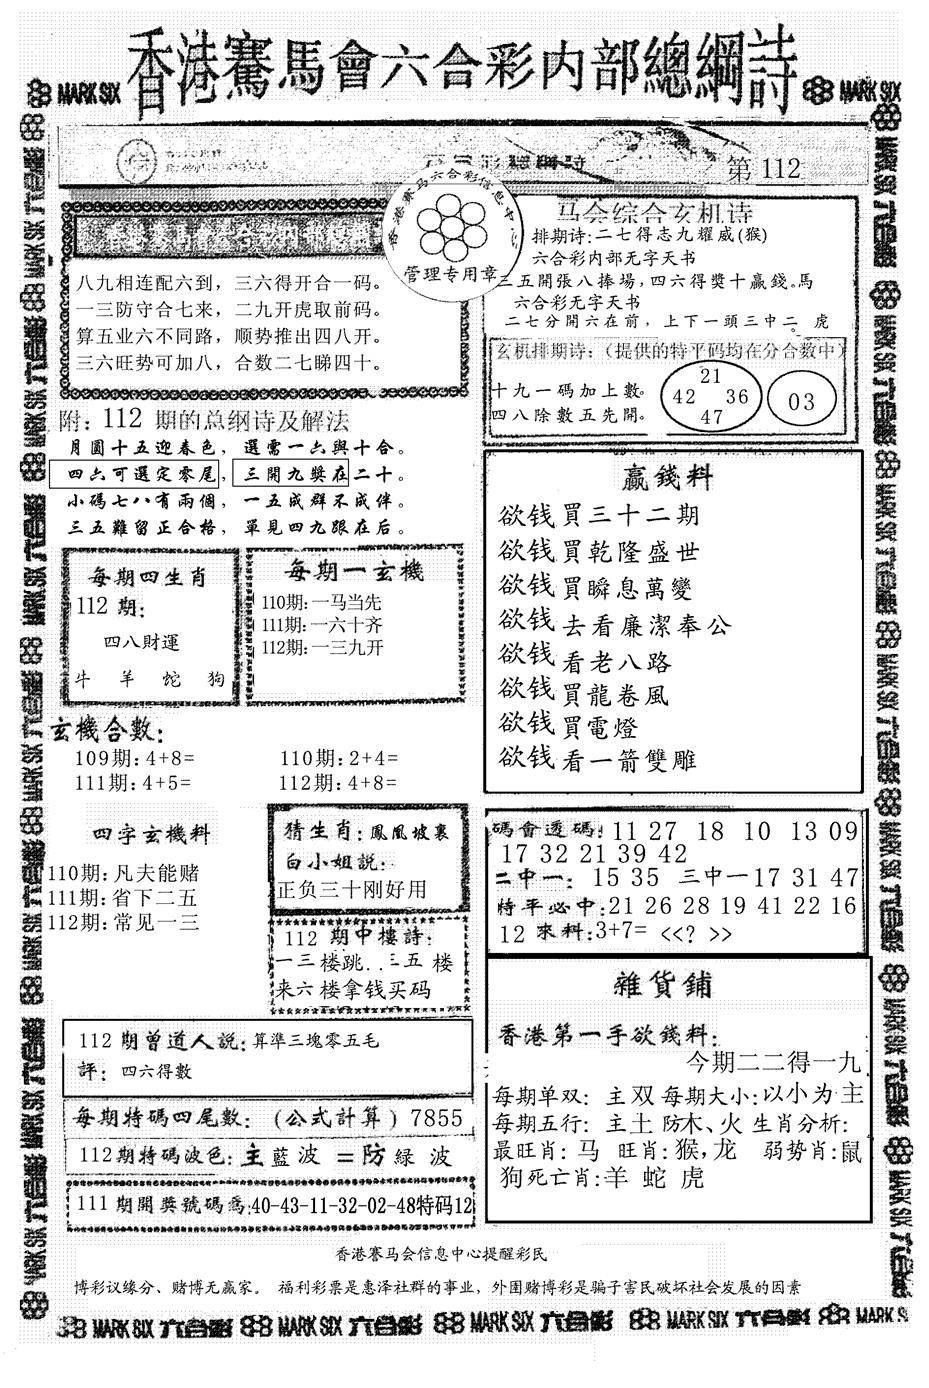 香港賽馬會六合彩内部總綱詩
MARK SIX
MARK SIX
第 112
香港赛马六合彩信息中心
管理专用章
八九相连配六到，三六得开合一码。
一三防守合七来，二九开虎取前码。
算五业六不同路，顺势推出四八开。
三六旺势可加八，合数二七睇四十。
马会综合玄机诗
排期诗:二七得志九耀威(猴)
六合彩内部无字天书
三五開張八捧場,四六得獎十贏錢。馬
六合彩无字天书
二七分開六在前，上下一頭三中二。虎
玄机排期诗:（提供的特平码均在分合数中）
十九一碼加上數。
四八除數五先開。
21
42 36
47
03
附: 112 期的总纲诗及解法
月圓十五迎春色，選需一六與十合。
四六可選定零尾，三開九獎在二十。
小碼七八有兩個，一五成群不成伴。
三五難留正合格，單見四九跟在后。
每期四生肖
112 期:
四八財運
牛 羊 蛇 狗
每期一玄機
110期:一马当先
111期:一六十齐
112期:一三九开
赢錢料
欲钱買三十二期
欲钱買乾隆盛世
欲钱買瞬息萬變
欲钱去看廉潔奉公
欲钱看老八路
欲钱買龍卷風
欲钱買電燈
欲钱看一箭雙雕
玄機合數:
109期:4+8= 110期:2+4=
111期:4+5= 112期:4+8=
四字玄機料
110期:凡夫能赌
111期:省下二五
112期:常见一三
猜生肖:鳳凰坡裏
白小姐説:
正负三十刚好用
112 期中樓詩:
一三楼跳..三五 楼
来六楼拿钱买码
碼會透碼: 11 27 18 10 13 09
17 32 21 39 42
二中一: 15 35 三中一17 31 47
特平必中:21 26 28 19 41 22 16
12 來料:3+7= <<? >>
雜貨鋪
香港第一手欲錢料:
今期二二得一九
每期单双: 主双 每期大小:以小为主
每期五行: 主土 防木、火 生肖分析:
最旺肖: 马 旺肖: 猴,龙 弱势肖:鼠
狗死亡肖:羊 蛇 虎
112 期曾道人説:算準三塊零五毛
評: 四六得數
每期特碼四尾數: (公式計算) 7855
112期特碼波色:主藍波 =防緑 波
111 期開獎號碼爲:40-43-11-32-02-48特码12
香港赛马会信息中心提醒彩民
博彩议缘分、赌博无赢家。 福利彩票是惠泽社群的事业，外围赌博彩是骗子害民破坏社会发展的因素
MARK SIX 六合彩 MARK SIX 六合彩 MARK SIX 六合彩 MARK SIX 六合彩 MARK SIX